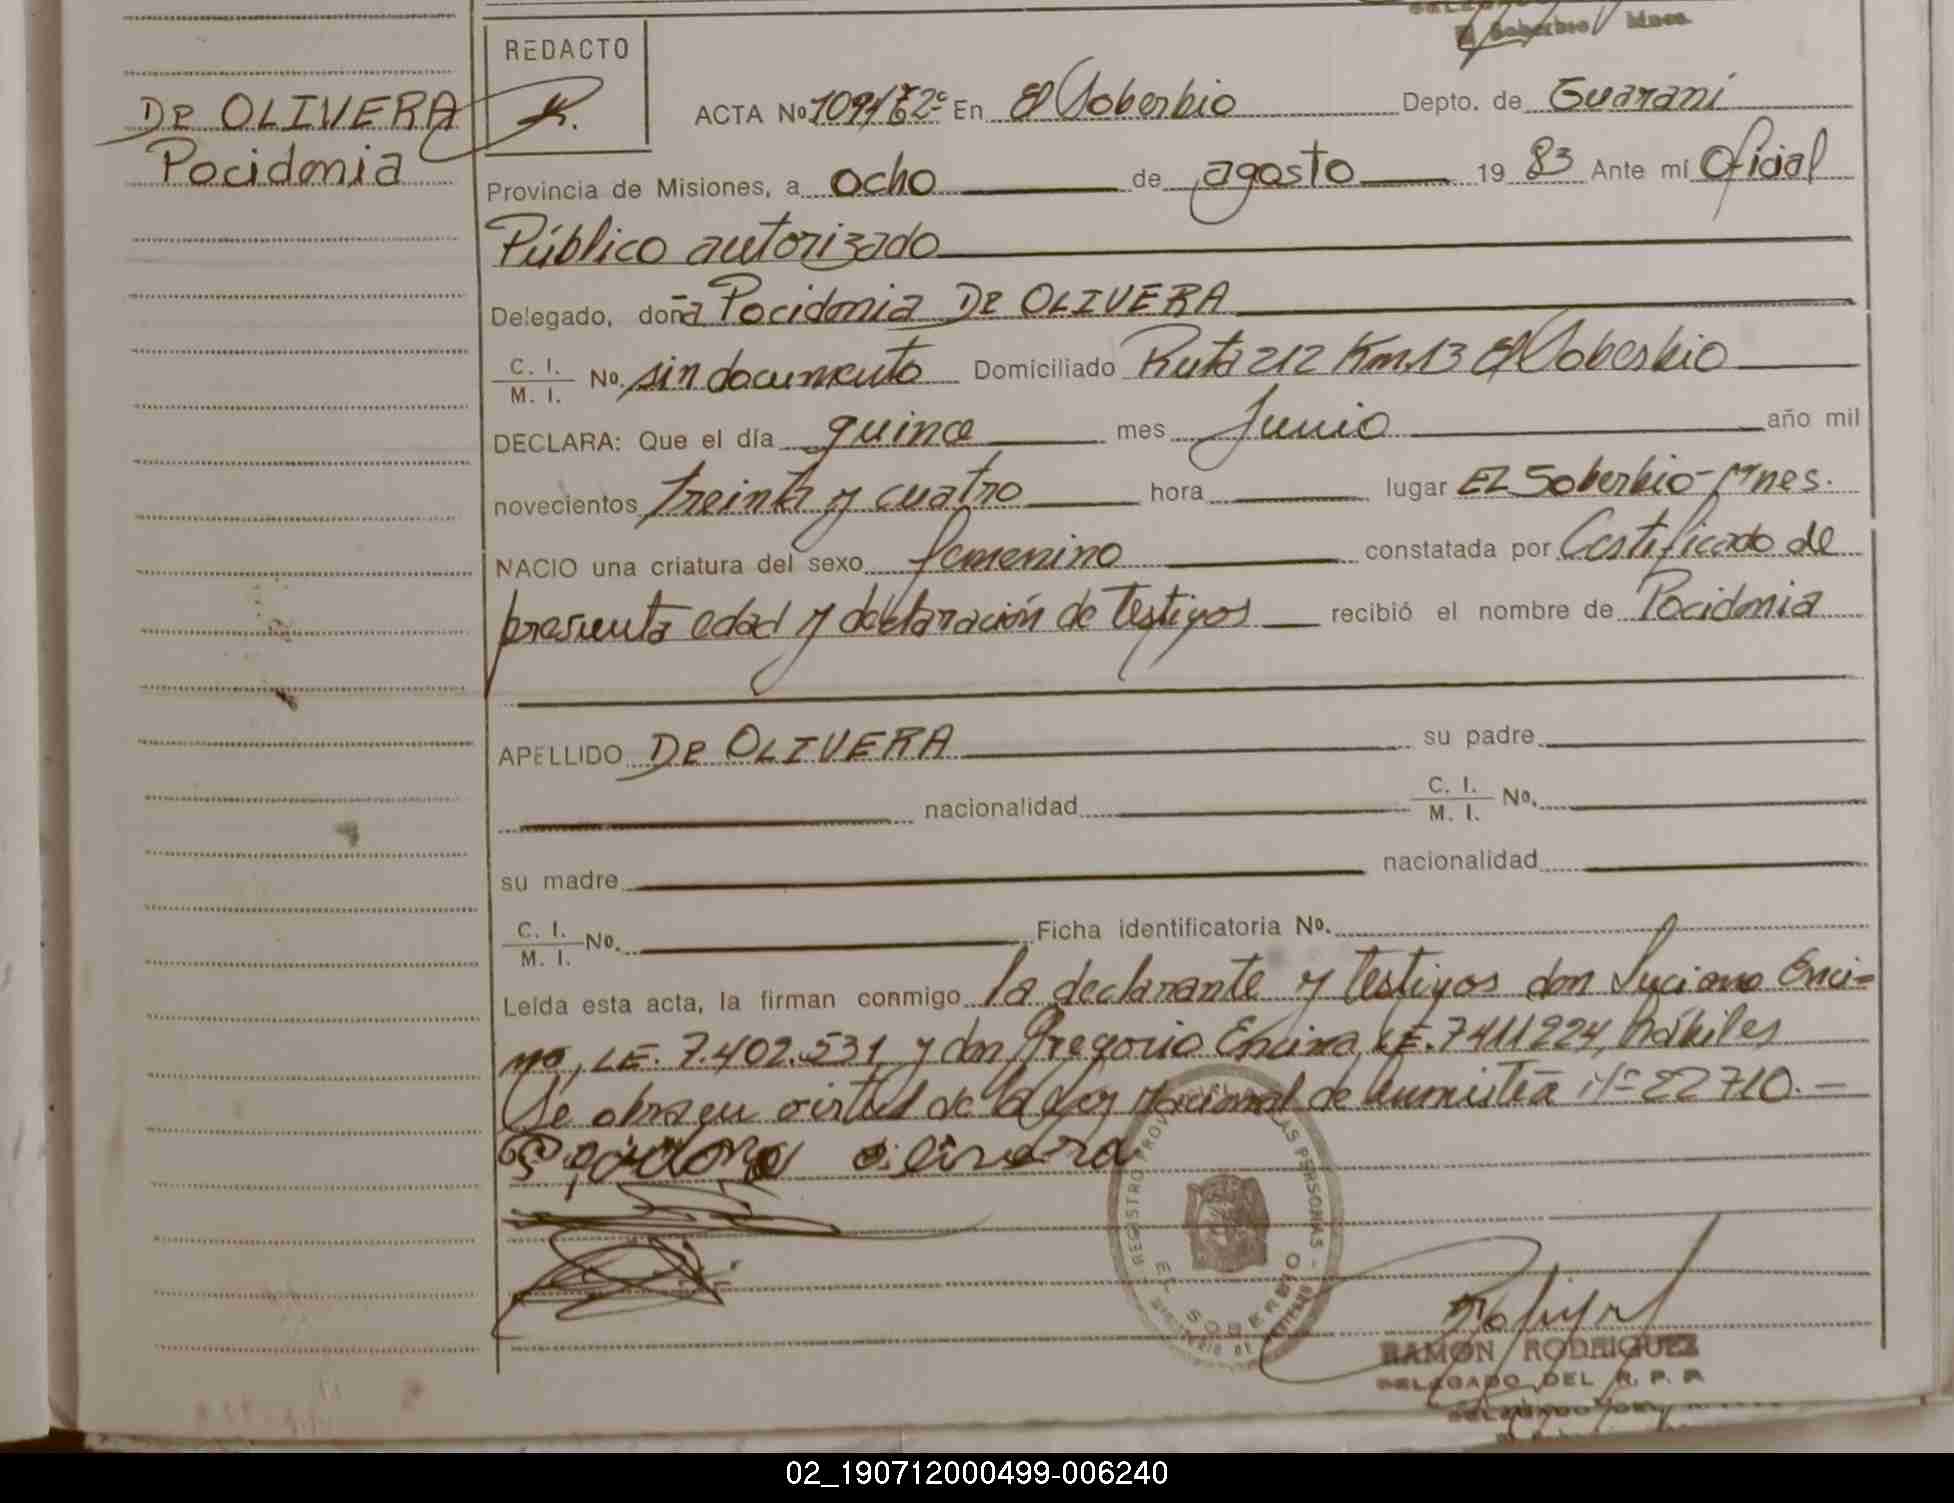 El Soberbio Mnes.
REDACTO
DE OLIVERA
Pocidonia
ACTA Nº 109 Tº 2º En El Soberbio Depto. de Guaraní
Provincia de Misiones, a ocho de agosto 19 83 Ante mí Oficial
Público autorizado
Delegado, doña Pocidonia DE OLIVERA
C. I.
M. I. Nº. sin documento Domiciliado Ruta 212 Km 13 El Soberbio
DECLARA: Que el día quince mes Junio año mil
novecientos treinta y cuatro hora lugar EL Soberbio - Mnes.
NACIO una criatura del sexo femenino constatada por Certificado de
presunta edad y declaración de testigos recibió el nombre de Pocidonia
APELLIDO DE OLIVERA su padre
nacionalidad C. I.
M. I. Nº.
su madre nacionalidad
C. I.
M. I. Nº. Ficha identificatoria Nº.
Leída esta acta, la firman conmigo la declarante y testigos don Luciano Enci=
na, LE. 7.402.531 y don Gregorio Encina, LE. 7411224, hábiles
Se obra en virtud de la Ley Nacional de Amnistía Nº 22710. -
olivera
REGISTRO PROVINCIAL DE LAS PERSONAS
EL SOBERBIO
RAMON RODRIGUEZ
DELEGADO DEL R. P. P.
02_190712000499-006240